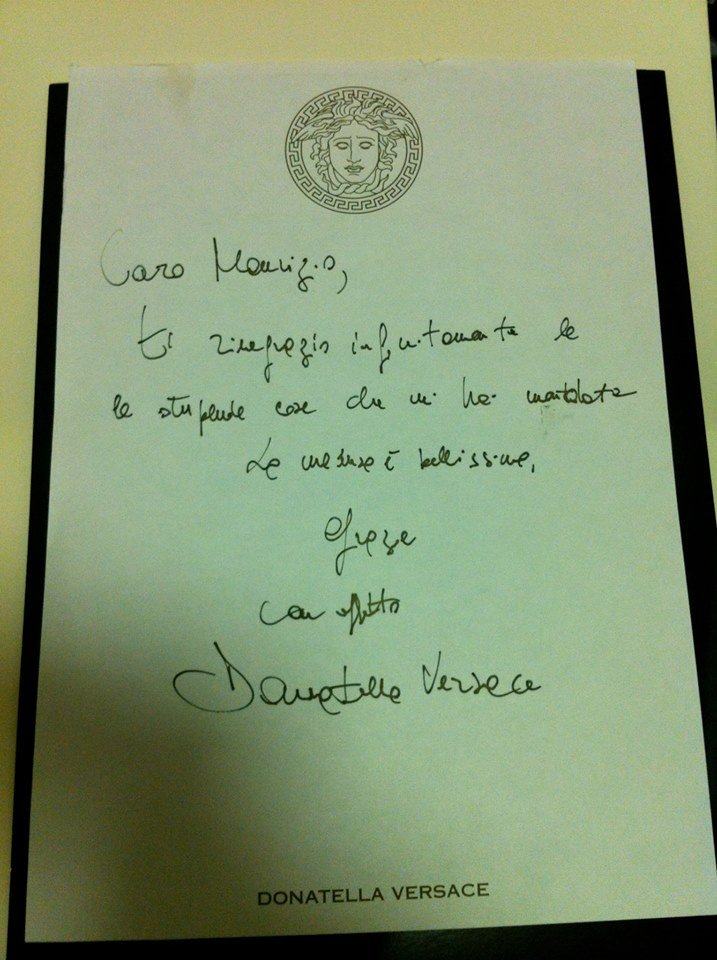 Caro Maurizio,
ti ringrazio infinitamente le
le stupende cose che mi hai mandato
Le è bellissima,
Grazie
con affetto
Donatella Versace
DONATELLA VERSACE